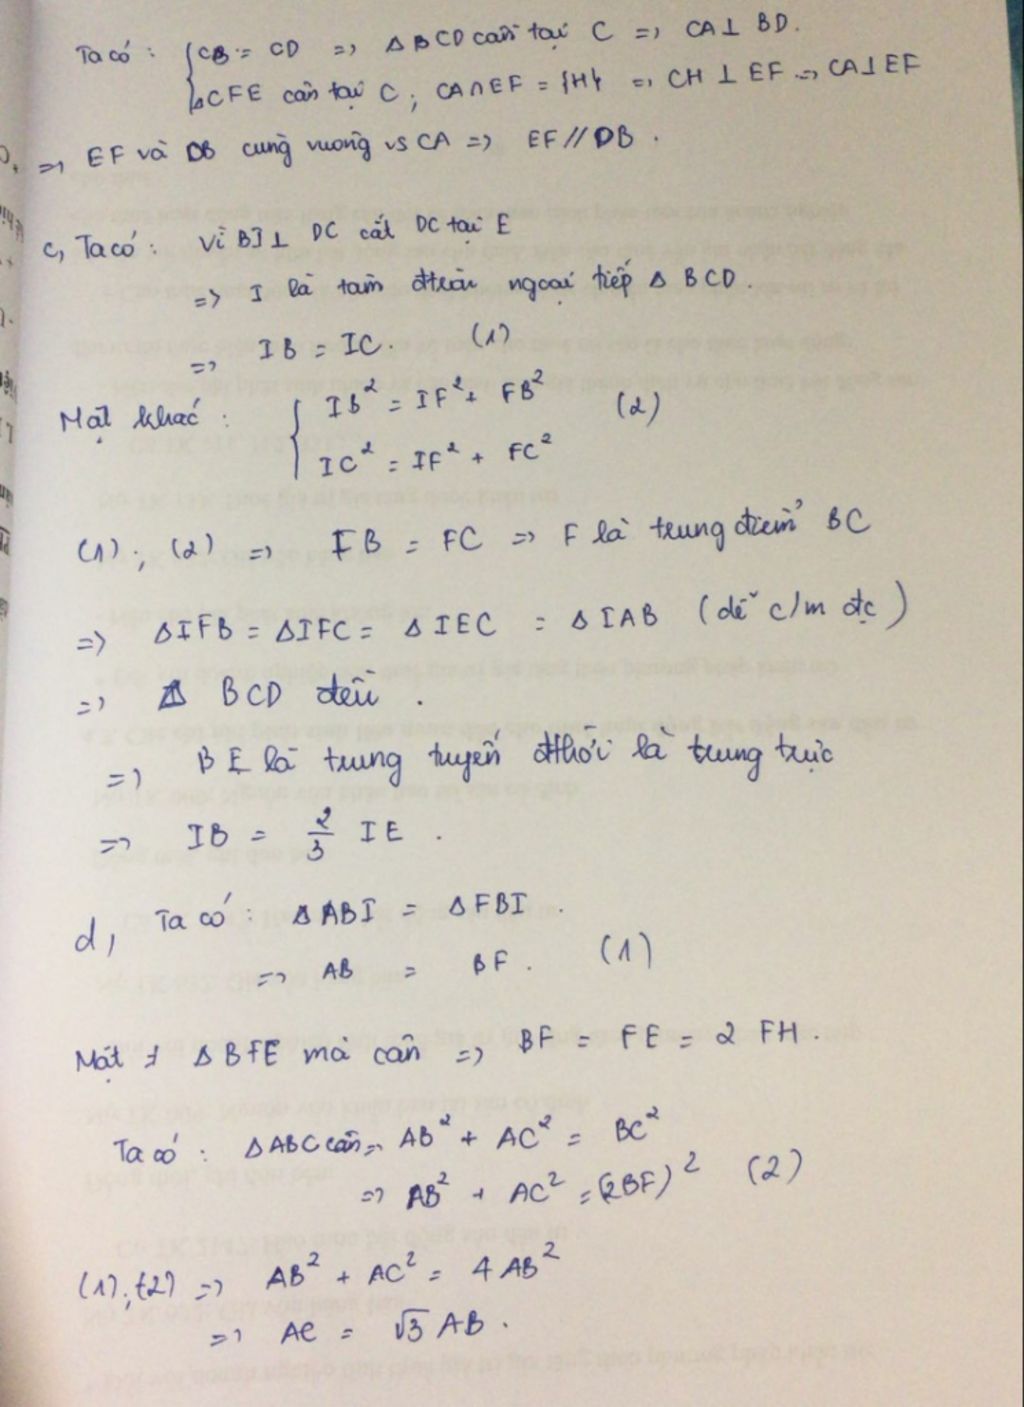 Ta có : { CB = CD => Δ BCD cân tại C => CA ⊥ BD.
Δ CFE cân tại C ; CA ∩ EF = {H} => CH ⊥ EF => CA ⊥ EF
=> EF và DB cùng vuông vs CA => EF // DB .
c, Ta có : Vì BI ⊥ DC cắt DC tại E
=> I là tâm đtròn ngoại tiếp Δ BCD .
=> IB = IC . (1)
Mặt khác : { IB² = IF² + FB² (2)
IC² = IF² + FC²
(1) ; (2) => FB = FC => F là trung điểm BC
=> ΔIFB = ΔIFC = Δ IEC = Δ IAB (dễ c/m đc)
=> Δ BCD đều .
=> BE là trung tuyến đthời là trung trực
=> IB = 2/3 IE .
d, Ta có : Δ ABI = Δ FBI .
=> AB = BF . (1)
Mặt ≠ Δ BFE mà cân => BF = FE = 2 FH .
Ta có : Δ ABC cân => AB² + AC² = BC²
=> AB² + AC² = (2BF)² (2)
(1) ; (2) => AB² + AC² = 4 AB²
=> AC = √3 AB .